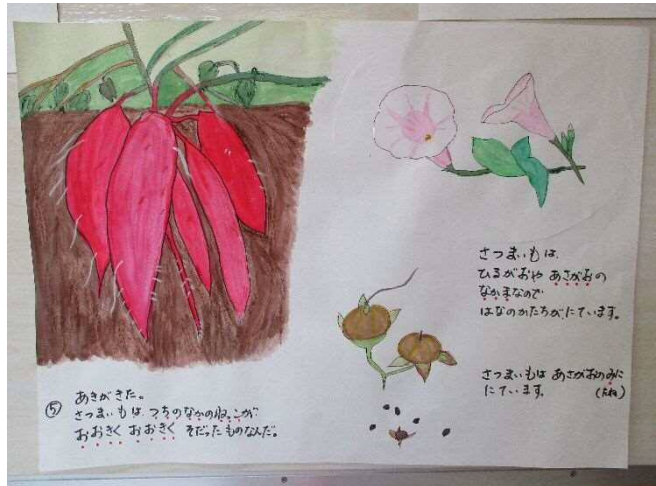 さつまいもは、
ひるがおや あさがおの
なかまなので
はなのかたちが、にています。
さつまいもは あさがおのみに
(たね)
にています。
⑤
あきがきた。
さつまいもは、つちのなかのねっこが
おおきく おおきく そだったものなんだ。